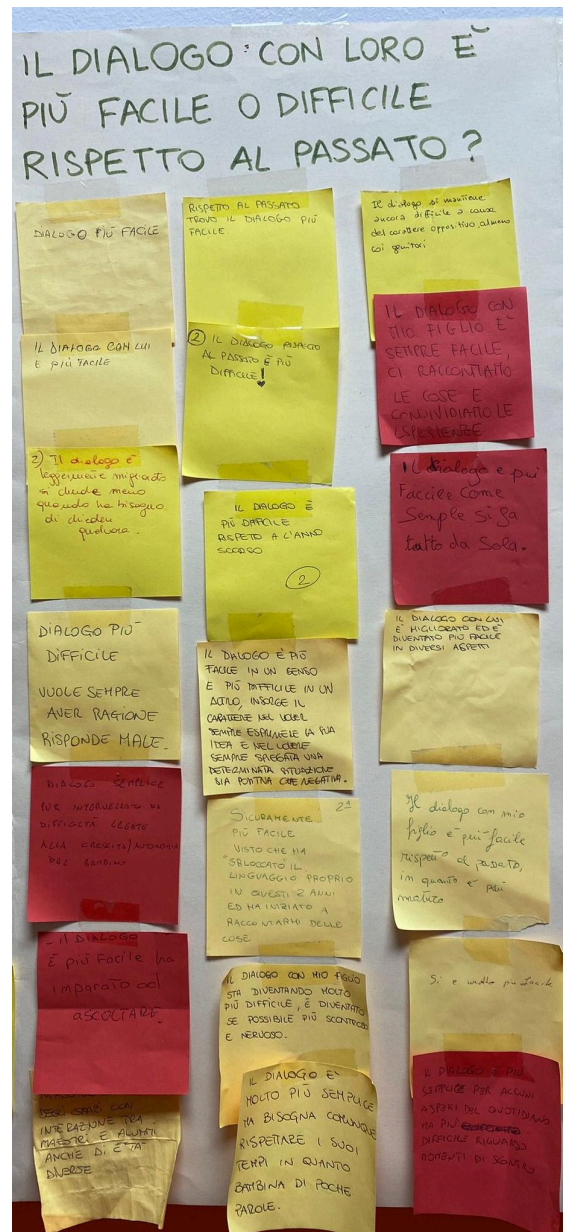 IL DIALOGO CON LORO E'
PIÙ FACILE O DIFFICILE
RISPETTO AL PASSATO?
DIALOGO PIÙ FACILE
IL DIALOGO CON LUI
E più FACILE
2) Il dialogo è
leggermente migliorato
si chiude meno
quando ha bisogno
di chiedere
qualcosa.
DIALOGO PIÙ
DIFFICILE
VUOLE SEMPRE
AVER RAGIONE
RISPONDE MALE.
DIALOGO SEMPLICE
PUR INTERVALLATO DA
DIFFICOLTÀ LEGATE
ALLA CRESCITA/AUTONOMIA
DEL BAMBINO
- IL DIALOGO
È più FACILE ha
imparato ad
ASCOLTARE.
DEGLI SPAZI CON
INTERAZIONE TRA
MAESTRI E ALUNNI
ANCHE DI ETÀ
DIVERSE
RISPETTO AL PASSATO
TROVO IL DIALOGO PIÙ
FACILE.
2 IL DIALOGO RISPETTO
AL PASSATO È PIÙ
DIFFICILE!
IL DIALOGO È
PIÙ DIFFICILE
RISPETO A L'ANNO
SCORSO
2
IL DIALOGO È PIÙ
FACILE IN UN SENSO
E PIÙ DIFFICILE IN UN
ALTRO, INSORGE IL
CARATTERE NEL VOLER
SEMPRE ESPRIMERE LA SUA
IDEA E NEL VOLERE
SEMPRE SPIEGATA UNA
DETERMINATA SITUAZIONE
SIA POSITIVA CHE NEGATIVA.
2ª
SICURAMENTE
PIÙ FACILE
VISTO CHE HA
"SBLOCCATO" IL
LINGUAGGIO PROPRIO
IN QUESTI 2 ANNI
ED HA INIZIATO A
RACCONTARMI DELLE
COSE
IL DIALOGO CON MIO FIGLIO
STA DIVENTANDO MOLTO
PIÙ DIFFICILE, È DIVENTATO
SE POSSIBILE PIÙ SCONTROSO
E NERVOSO.
IL DIALOGO E'
MOLTO PIÙ SEMPLICE
MA BISOGNA COMUNQUE
RISPETTARE I SUOI
TEMPI IN QUANTO
BAMBINA DI POCHE
PAROLE.
Il dialogo, si mantiene
ancora difficile a causa
del carattere oppositivo, almeno
coi genitori
IL DIALOGO CON
MIO FIGLIO E'
SEMPRE FACILE
CI RACCONTIAMO
LE COSE E
CONDIVIDIAMO LE
ESPERIENZE
Il dialogo e più
Faccile Come
Semple si fa
tutto da Sola.
IL DIALOGO CON LUI
E' MIGLIORATO ED E'
DIVENTATO PIÙ FACILE
IN DIVERSI ASPETTI
Il dialogo con mio
figlio è più facile
rispetto al passato,
in quanto è più
maturo
Si e molto più facile
IL DIALOGO È PIÙ
SEMPLICE PER ALCUNI
ASPETTI DEL QUOTIDIANO
MA PIÙ
DIFFICILE RIGUARDO
MOMENTI DI SCONTRO